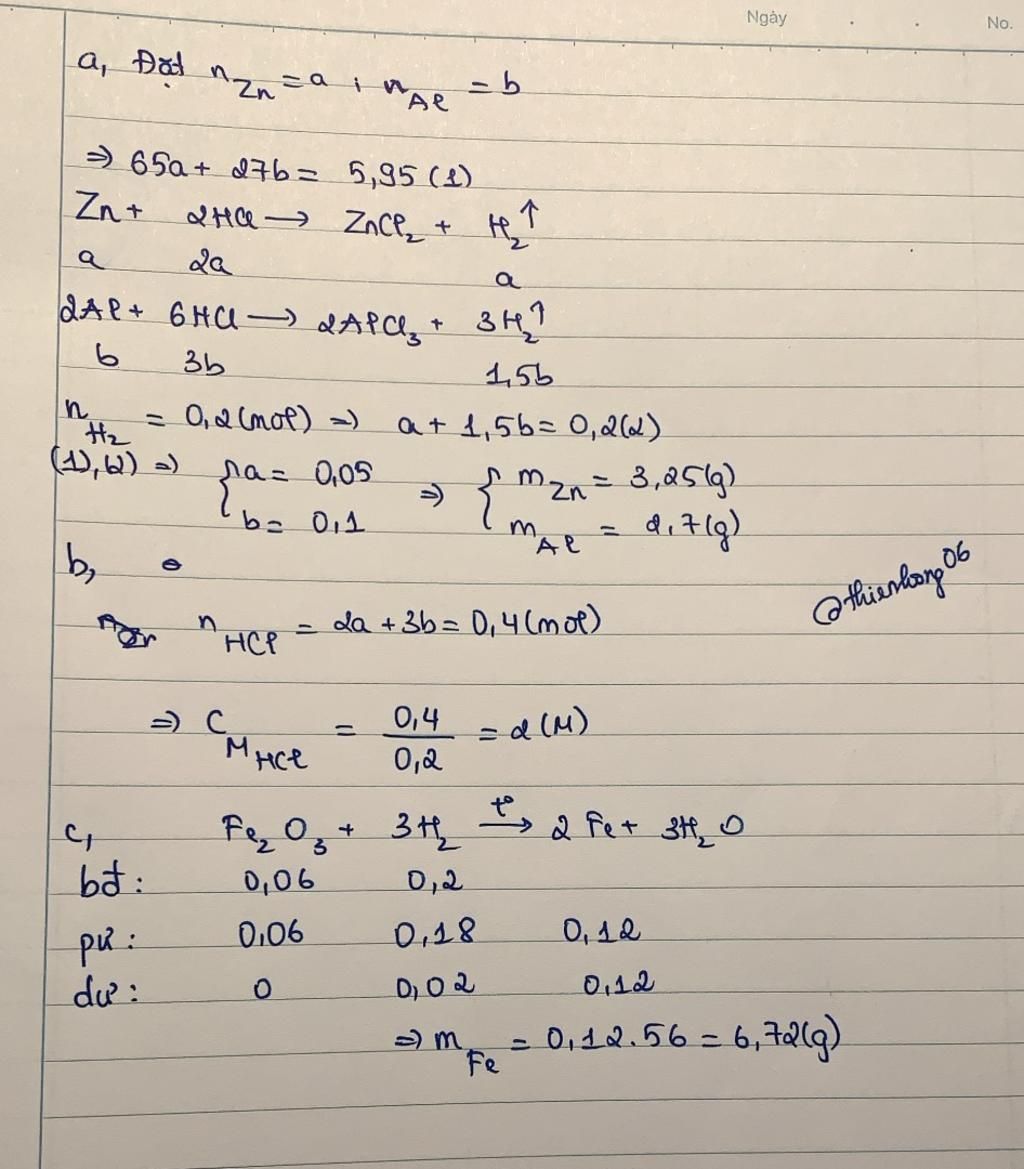 Ngày . . No.
a, Đặt n_Zn = a ; n_Al = b
⇒ 65a + 27b = 5,95 (1)
Zn + 2HCl → ZnCl₂ + H₂↑
a 2a a
2Al + 6HCl → 2AlCl₃ + 3H₂↑
b 3b 1,5b
n_H₂ = 0,2 (mol) ⇒ a + 1,5b = 0,2 (2)
(1), (2) ⇒ { a = 0,05 ⇒ { m_Zn = 3,25 (g)
b = 0,1 m_Al = 2,7 (g)
b,
@thienhoang06
n_HCl = 2a + 3b = 0,4 (mol)
⇒ C_M HCl = 0,4 / 0,2 = 2 (M)
c, Fe₂O₃ + 3H₂ →(t°) 2Fe + 3H₂O
bđ : 0,06 0,2
pư : 0,06 0,18 0,12
dư : 0 0,02 0,12
⇒ m_Fe = 0,12.56 = 6,72 (g)